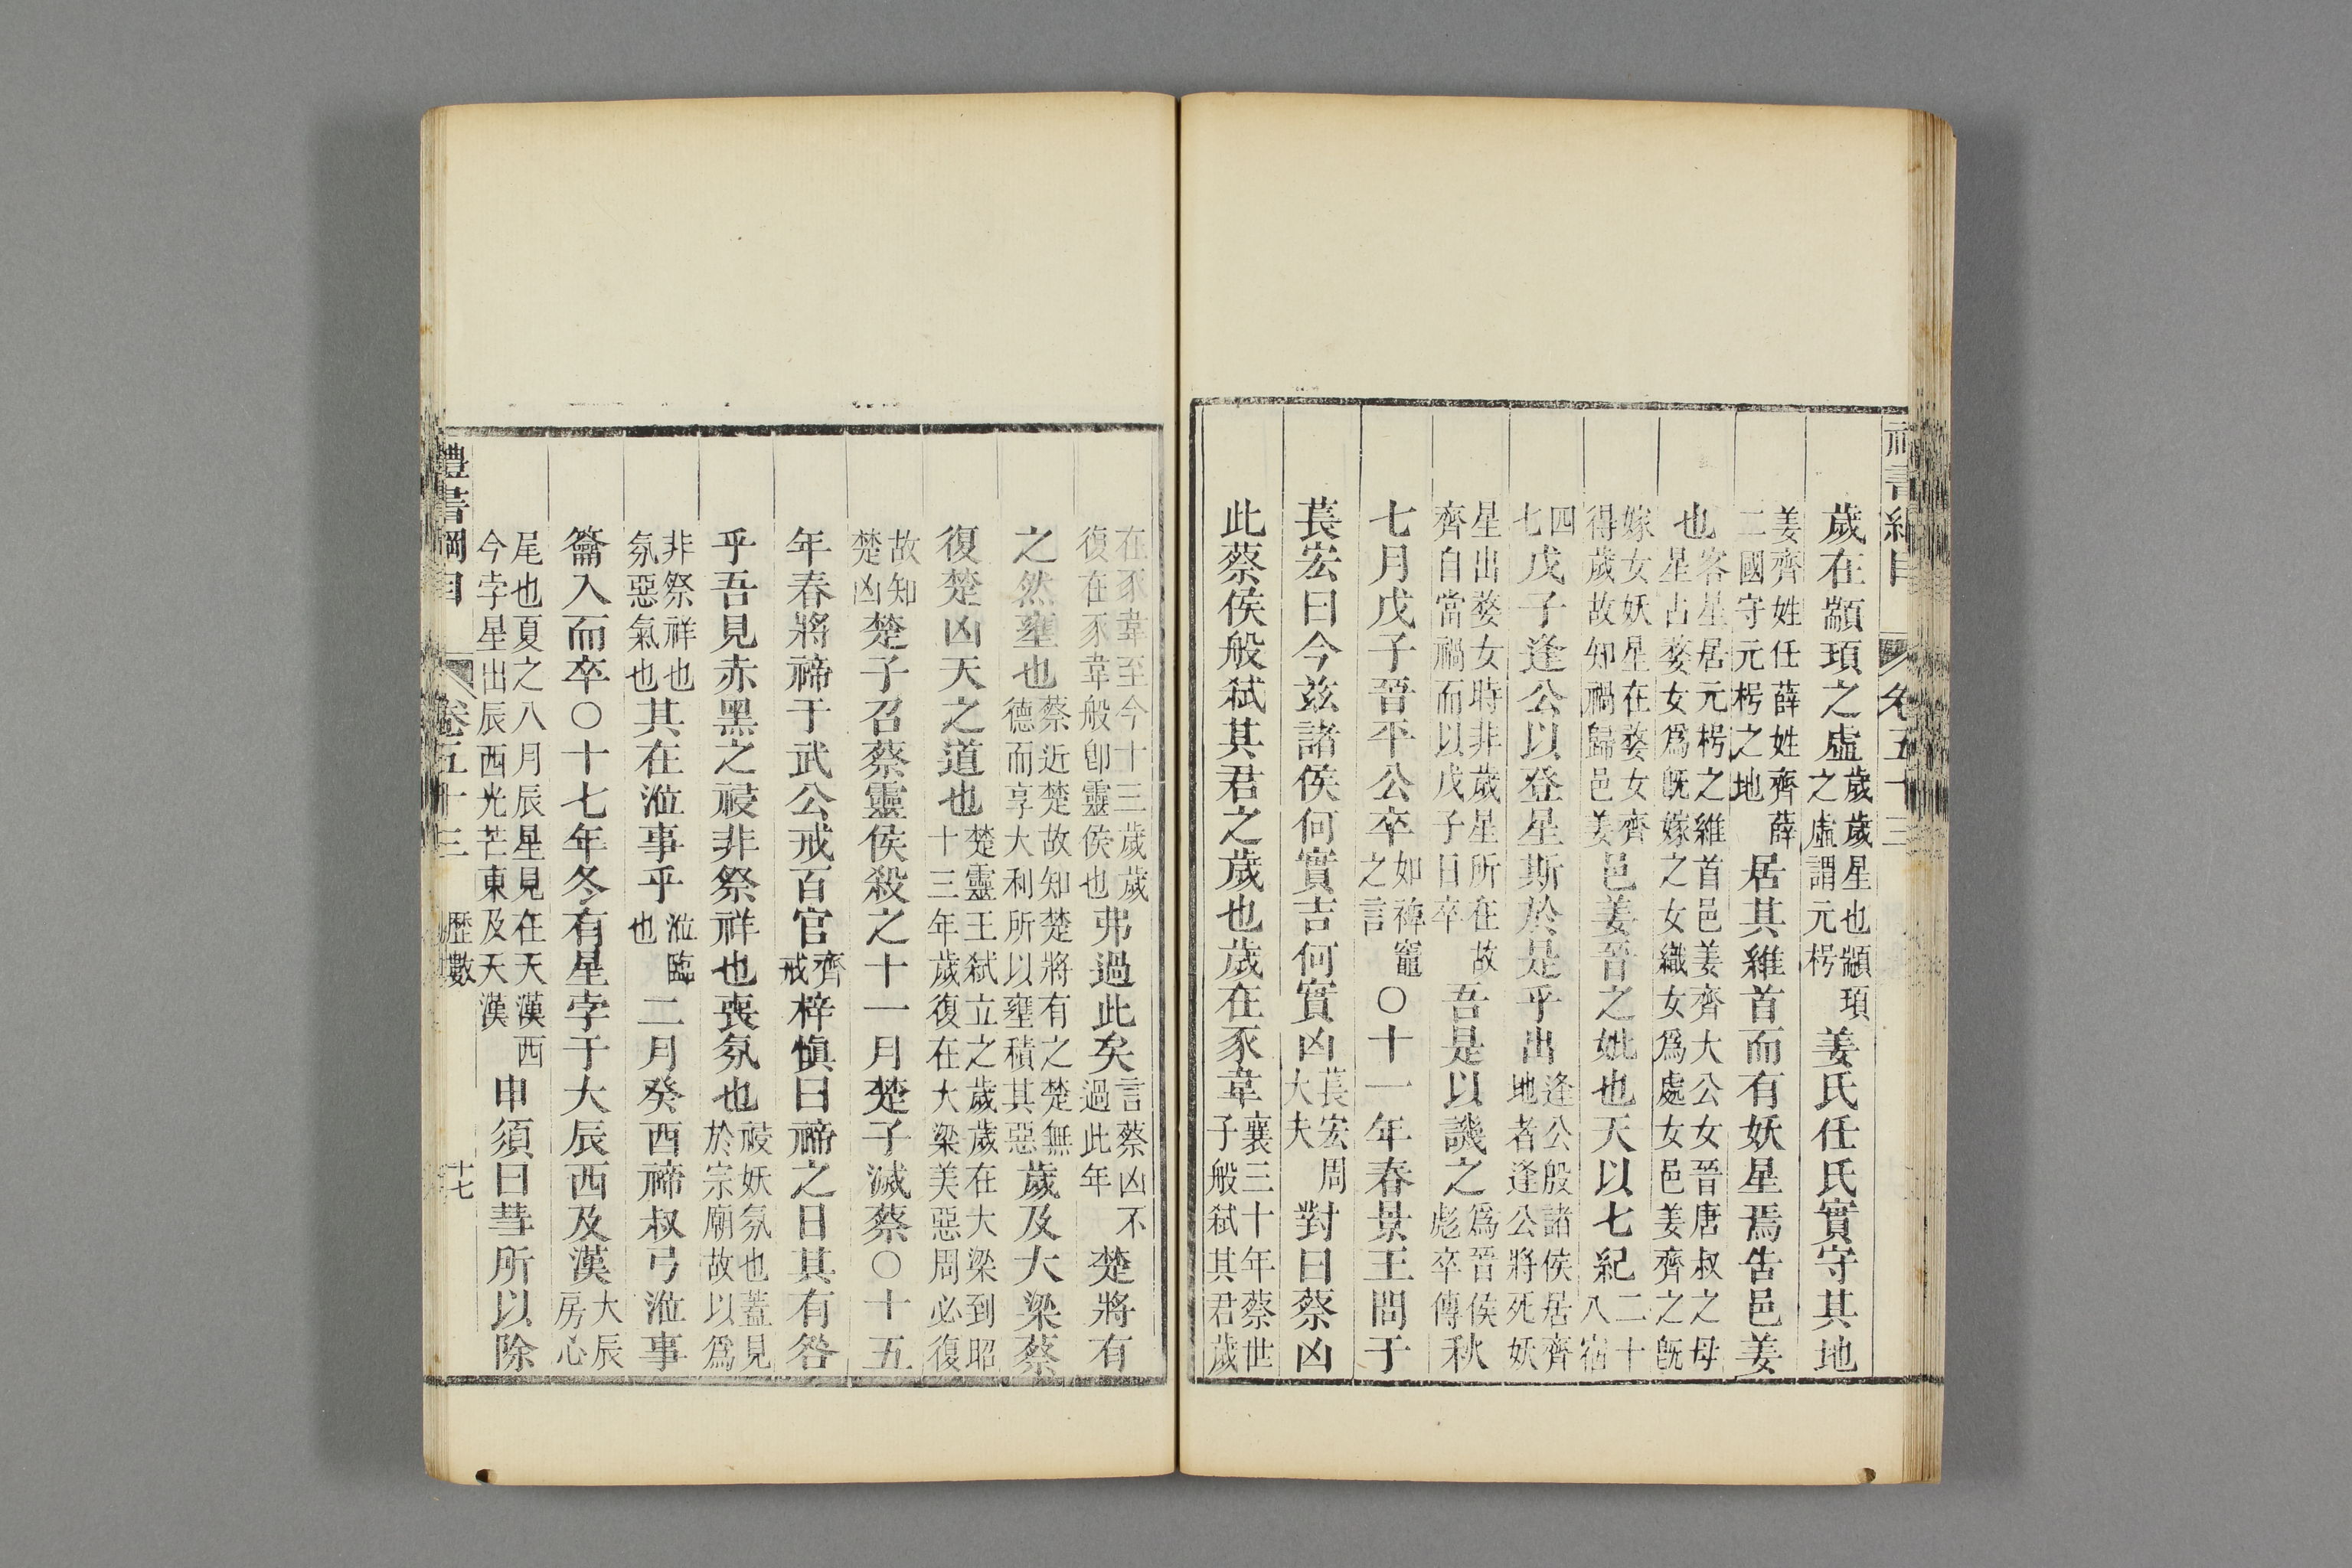 禮書綱目 卷五十三
歲在顓頊之虛歲歲星也顓頊之虛謂元枵姜氏任氏實守其地
姜齊姓任薛姓齊薛二國守元枵之地居其維首而有妖星焉告邑姜
也客星居元枵之維首邑姜齊大公女晉唐叔之母星占婺女爲旣嫁之女織女爲處女邑姜齊之旣
嫁女妖星在婺女齊得歲故知禍歸邑姜邑姜晉之妣也天以七紀二十八宿
四七戊子逢公以登星斯於是乎出逢公殷諸侯居齊地者逢公將死妖
星出婺女時非歲星所在故齊自當禍而以戊子日卒吾是以譏之爲晉侯彪卒傳秋
七月戊子晉平公卒如裨竈之言○十一年春景王問于
萇宏曰今兹諸侯何實吉何實凶萇宏周大夫對曰蔡凶
此蔡侯般弑其君之歲也歲在豕韋襄三十年蔡世子般弑其君歲
在豕韋至今十三歲歲復在豕韋般卽靈侯也弗過此矣言蔡凶不過此年楚將有
之然壅也蔡近楚故知楚將有之楚無德而享大利所以壅積其惡歲及大梁蔡
復楚凶天之道也楚靈王弑立之歲歲在大梁到昭十三年歲復在大梁美惡周必復
故知楚凶楚子召蔡靈侯殺之十一月楚子滅蔡○十五
年春將禘于武公戒百官齊戒梓愼曰禘之日其有咎
乎吾見赤黑之祲非祭祥也喪氛也祲妖氛也蓋見於宗廟故以爲
非祭祥也氛惡氣也其在涖事乎涖臨也二月癸酉禘叔弓涖事
籥入而卒○十七年冬有星孛于大辰西及漢大辰房心
尾也夏之八月辰星見在天漢西今孛星出辰西光芒東及天漢申須曰彗所以除
禮書綱目 卷五十三 歷數 十七